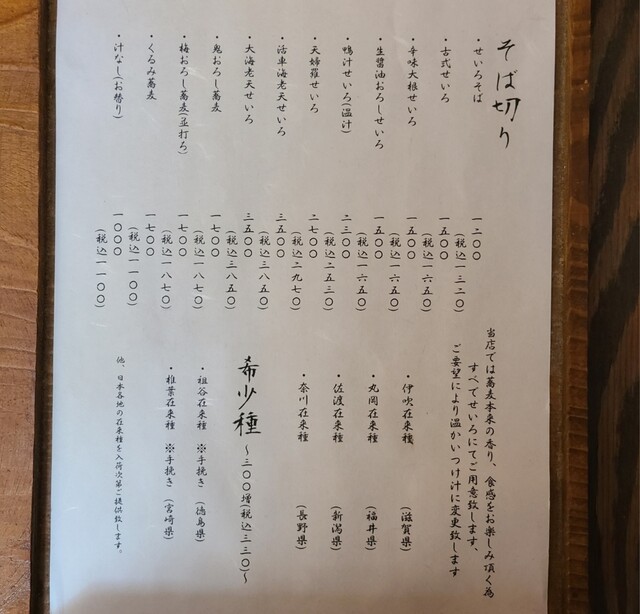 そば切り
・せいろそば
一二〇〇
(税込一三二〇)
・古式せいろ
一五〇〇
(税込一六五〇)
・辛味大根せいろ
一五〇〇
(税込一六五〇)
・生醬油おろしせいろ
一五〇〇
(税込一六五〇)
・鴨汁せいろ(温汁)
二三〇〇
(税込二五三〇)
・天婦羅せいろ
二七〇〇
(税込二九七〇)
・活車海老天せいろ
三五〇〇
(税込三八五〇)
・大海老天せいろ
三五〇〇
(税込三八五〇)
・鬼おろし蕎麦
一七〇〇
(税込一八七〇)
・梅おろし蕎麦(並打ろ)
一七〇〇
(税込一八七〇)
・くるみ蕎麦
一七〇〇
(税込一一〇〇)
・汁なし(お替り)
一〇〇〇
(税込一一〇〇)
当店では蕎麦本来の香り、食感をお楽しみ頂く為
すべてせいろにてご用意致します、
ご要望により温かいつけ汁に変更致します
・伊吹在来種 (滋賀県)
・丸岡在来種 (福井県)
・佐渡在来種 (新潟県)
・奈川在来種 (長野県)
希少種 ～三〇〇増(税込三三〇)～
・祖谷在来種 ※手挽き (徳島県)
・椎葉在来種 ※手挽き (宮崎県)
他、日本各地の在来種を入荷次第ご提供致します。